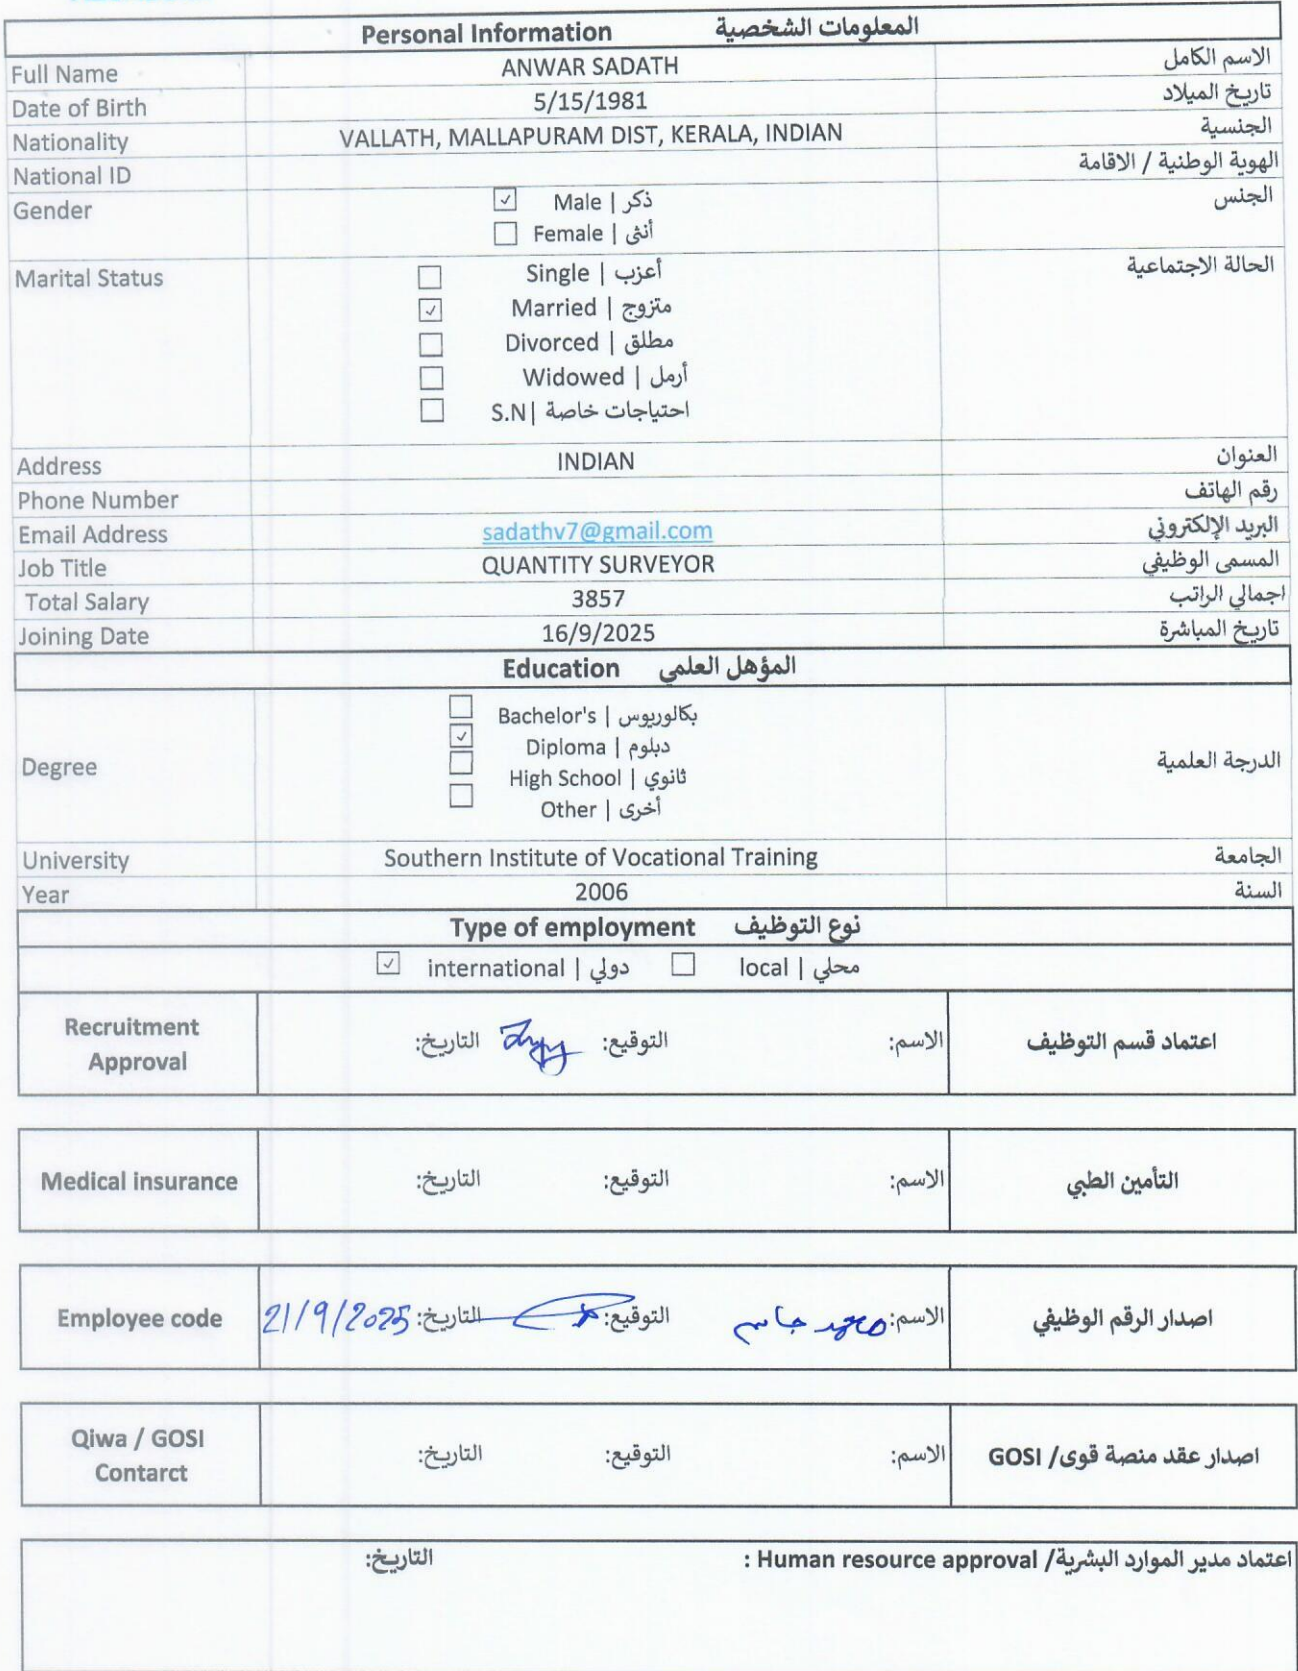 Personal Information المعلومات الشخصية
Full Name ANWAR SADATH الاسم الكامل
Date of Birth 5/15/1981 تاريخ الميلاد
Nationality VALLATH, MALLAPURAM DIST, KERALA, INDIAN الجنسية
National ID الهوية الوطنية / الاقامة
Gender ☑ Male | ذكر الجنس
☐ Female | أنثى
Marital Status ☐ Single | أعزب الحالة الاجتماعية
☑ Married | متزوج
☐ Divorced | مطلق
☐ Widowed | أرمل
☐ S.N| احتياجات خاصة
Address INDIAN العنوان
Phone Number رقم الهاتف
Email Address sadathv7@gmail.com البريد الإلكتروني
Job Title QUANTITY SURVEYOR المسمى الوظيفي
Total Salary 3857 اجمالي الراتب
Joining Date 16/9/2025 تاريخ المباشرة
Education المؤهل العلمي
☐ Bachelor's | بكالوريوس
☑ Diploma | دبلوم
Degree ☐ High School | ثانوي الدرجة العلمية
☐ Other | أخرى
University Southern Institute of Vocational Training الجامعة
Year 2006 السنة
Type of employment نوع التوظيف
☑ international | دولي ☐ local | محلي
Recruitment Approval التاريخ: التوقيع: الاسم: اعتماد قسم التوظيف
Medical insurance التاريخ: التوقيع: الاسم: التأمين الطبي
Employee code 21/9/2025 التاريخ: التوقيع: الاسم: محمد جاسم اصدار الرقم الوظيفي
Qiwa / GOSI Contarct التاريخ: التوقيع: الاسم: اصدار عقد منصة قوى/ GOSI
اعتماد مدير الموارد البشرية/ Human resource approval : التاريخ: